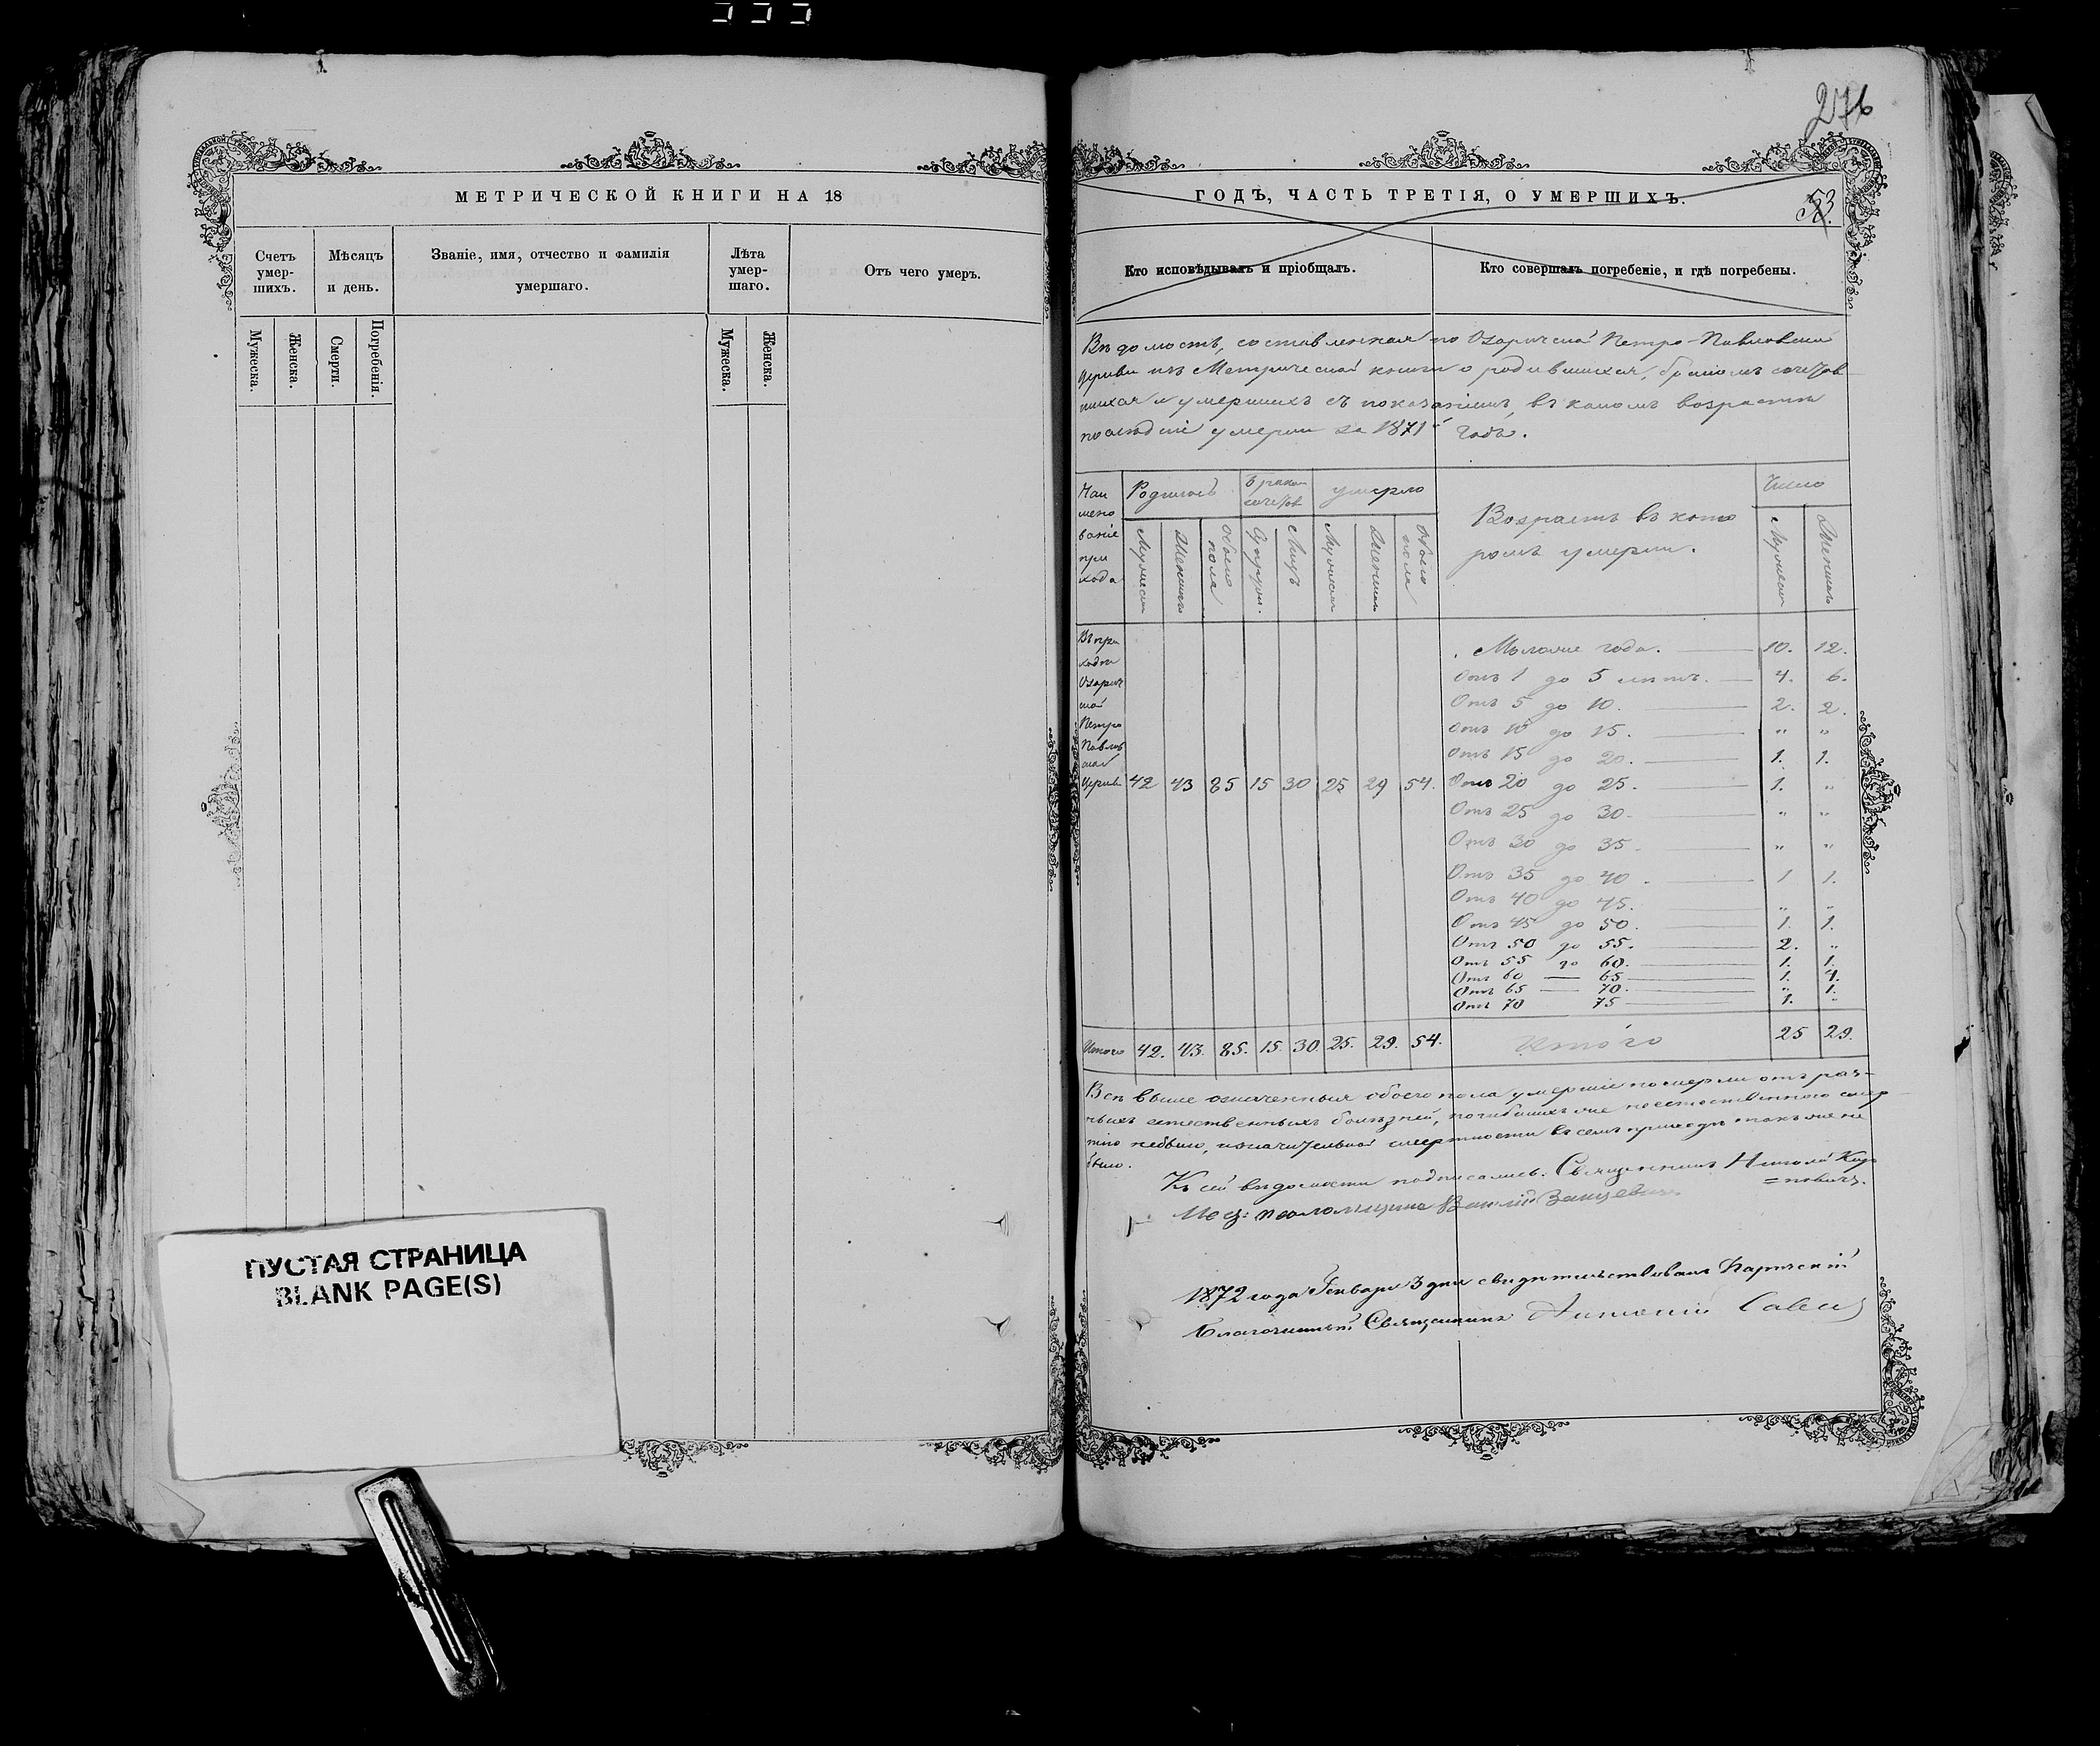 276
МЕТРИЧЕСКОЙ КНИГИ НА 18
Счетъ умер- шихъ.
Мѣсяцъ и день.
Званіе, имя, отчество и фамилія умершаго.
Лѣта умер- шаго.
Отъ чего умеръ.
Мужеска.
Женска.
Смерти.
Погребенія.
Мужеска.
Женска.
ПУСТАЯ СТРАНИЦА
BLANK PAGE(S)
ГОДЪ, ЧАСТЬ ТРЕТІЯ, О УМЕРШИХЪ.
53
Кто исповѣдывалъ и пріобщалъ.
Кто совершалъ погребеніе, и гдѣ погребены.
Вѣдомость, составленная по Озаричской Петро-Павловской
церкви изъ Метрической книги о родившихся, бракомъ сочетав
шихся и умершихъ съ показаніемъ, въ какомъ возрастѣ
послѣдніе умерли за 1871й годъ.
Наи мено ваніе при хода
Родилось
Бракомъ сочетав
умерло
Возрастъ въ кото
ромъ умерли.
Число
Мужеска
Женска
Обоего пола
Супруж.
Лицъ
Мужеска
Женска
Обоего пола
Мужеска
Женска
Въ при
ходѣ
Озарич
ской
Петро
Павлов
ской
Церкви 42 43 85 15 30 25 29 54.
Моложе года. 10. 12.
Отъ 1 до 5 лѣтъ. 4. 6.
Отъ 5 до 10. 2. 2.
Отъ 10 до 15. " "
Отъ 15 до 20. 1. 1.
Отъ 20 до 25. 1. "
Отъ 25 до 30. " "
Отъ 30 до 35. " "
Отъ 35 до 40. 1 1.
Отъ 40 до 45. " "
Отъ 45 до 50. 1. 1.
Отъ 50 до 55. 2. "
Отъ 55 до 60. 1. 1.
Отъ 60 — 65 1. 4.
Отъ 65 — 70. " 1.
Отъ 70 75 1. "
Итого 42. 43. 85. 15. 30. 25. 29. 54. Итого 25 29.
Всѣ выше означенныя обоего пола умершіе померли отъ раз-
ныхъ естественныхъ болѣзней, погибшихъ же неестественною смер
тію небыло, и значительной смертности въ семъ приходѣ такъ же не
было.
Къ сей вѣдомости подписались. Священникъ Николай
=повичъ.
псаломщика Василій
1872 года Генваря 3 дня свидѣтельствовалъ Паричскій
Благочинный Священникъ Антоній